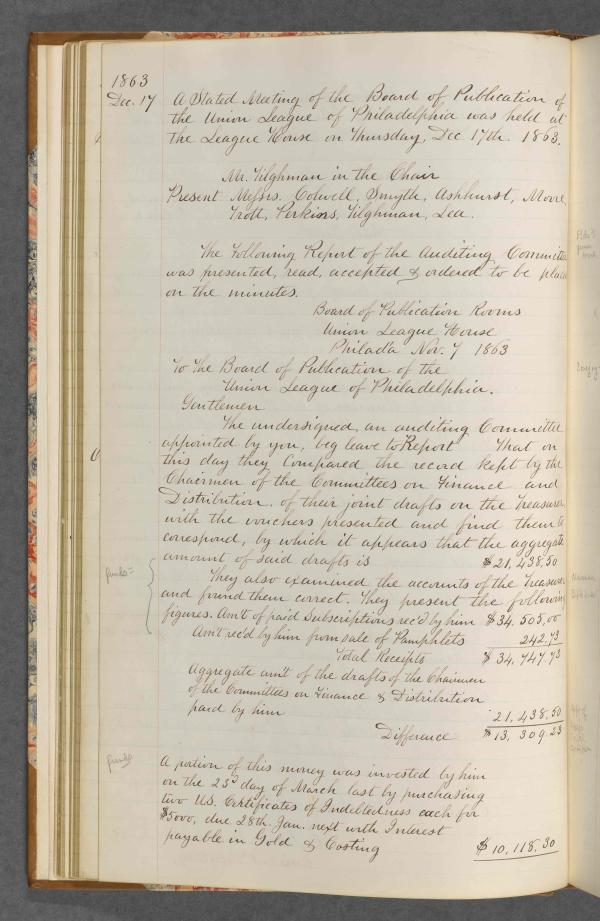 1863
Dec. 17 A Stated Meeting of the Board of Publication of
the Union League of Philadelphia was held at
the League House on Thursday, Dec 17th. 1863.
Mr. Tilghman in the Chair
Present Messrs. Colwell, Smyth, Ashhurst, Moore,
Trott, Perkins, Tilghman, Lea.
The Following Report of the Auditing Committee
was presented, read, accepted & ordered to be place
on the minutes.
Board of Publication Rooms
Union League House
Philada Nov. 7 1863
To the Board of Publication of the
Union League of Philadelphia.
Gentlemen
The undersigned, an auditing Committee
appointed by you, beg leave to Report That on
this day they Compared the record kept by the
Chairmen of the Committees on Finance and
Distribution, of their joint drafts on the Treasurer
with the vouchers presented and find them to
correspond, by which it appears that the aggregate
amount of said drafts is $21,438.50
funds=
They also examined the accounts of the Treasurer
and found them correct. They present the following
figures. Am't of paid Subscriptions rec'd by him $34.505,00
Am't rec'd by him from sale of Pamphlets 242.73
Total Receipts $34,747.73
Aggregate am't of the drafts of the Chairmen
of the Committees on Finance & Distribution
paid by him 21,438.50
Difference $13,309.23
funds
A portion of this money was invested by him
on the 23d day of March last by purchasing
two U.S. Certificates of Indebtedness each for
$5000, due 28th Jan. next with Interest
payable in Gold & Costing $10,118.30